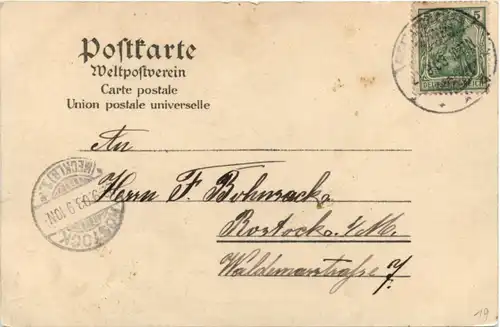 Postkarte
Weltpostverein
Carte postale
Union postale universelle
5
An
Herrn F. Bohnsack
Rostock i/M.
Waldemarstraße 7
ROSTOCK
(MECKLB)
19